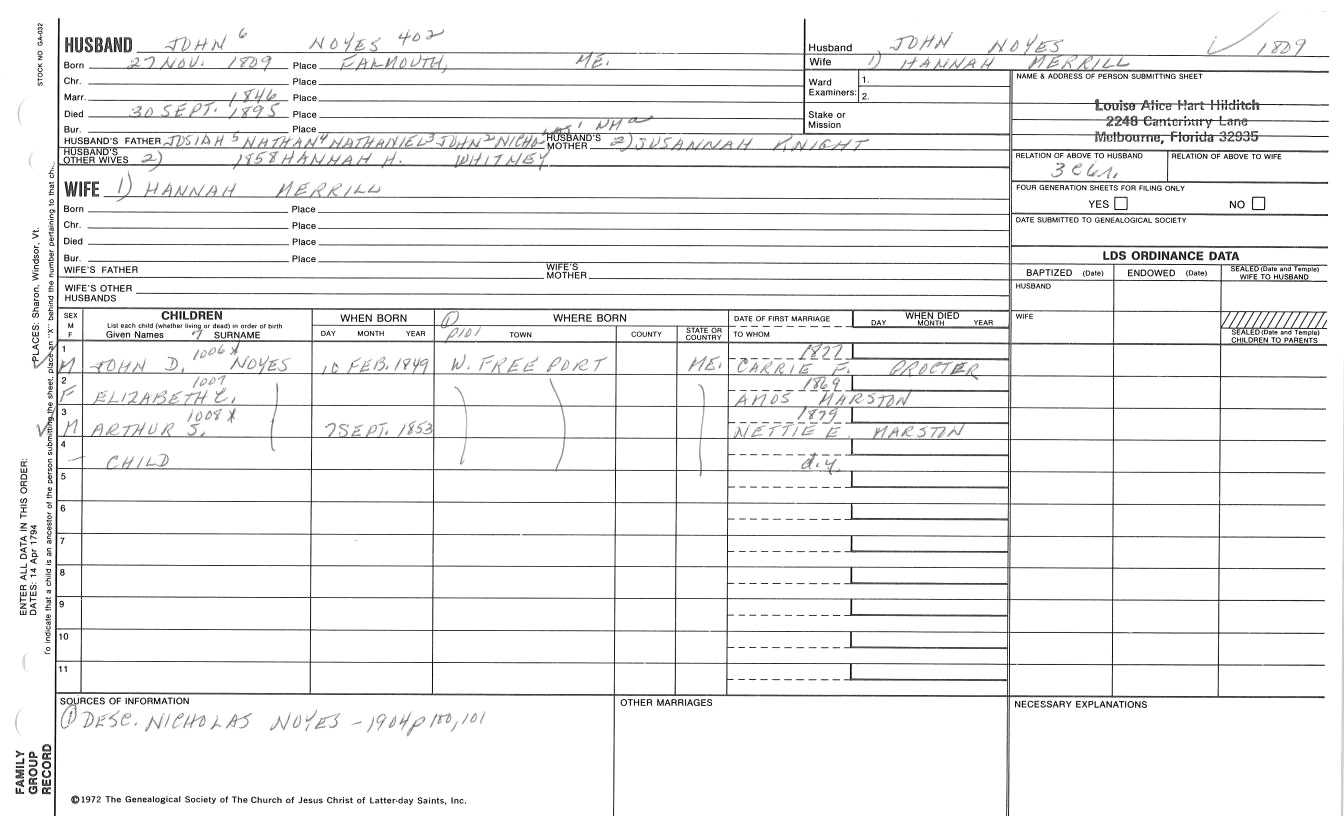 STOCK NO GA-032
HUSBAND JOHN 6 NOYES 402
Born 27 NOV. 1809 Place FALMOUTH, ME.
Chr. Place
Marr. 1846 Place
Died 30 SEPT. 1895 Place
Bur. Place
HUSBAND'S FATHER JOSIAH 5 NATHAN 4 NATHANIEL 3 JOHN 2 NICHOLAS 1 HUSBAND'S MOTHER 2) SUSANNAH KNIGHT
HUSBAND'S OTHER WIVES 2) 1858 HANNAH H. WHITNEY
WIFE 1) HANNAH MERRILL
Born Place
Chr. Place
Died Place
Bur. Place
WIFE'S FATHER WIFE'S MOTHER
WIFE'S OTHER HUSBANDS
Husband JOHN NOYES 1809
Wife 1) HANNAH MERRILL
Ward Examiners: 1.
2.
Stake or Mission
NAME & ADDRESS OF PERSON SUBMITTING SHEET
Louise Alice Hart Hilditch
2248 Canterbury Lane
Melbourne, Florida 32935
RELATION OF ABOVE TO HUSBAND RELATION OF ABOVE TO WIFE
FOUR GENERATION SHEETS FOR FILING ONLY
YES NO
DATE SUBMITTED TO GENEALOGICAL SOCIETY
LDS ORDINANCE DATA
BAPTIZED (Date) ENDOWED (Date) SEALED (Date and Temple) WIFE TO HUSBAND
HUSBAND
WIFE
SEALED (Date and Temple) CHILDREN TO PARENTS
SEX M F CHILDREN WHEN BORN ① WHERE BORN DATE OF FIRST MARRIAGE WHEN DIED
List each child (whether living or dead) in order of birth
Given Names 7 SURNAME DAY MONTH YEAR p101 TOWN COUNTY STATE OR COUNTRY TO WHOM DAY MONTH YEAR
1 1006 X
M JOHN D. NOYES 10 FEB. 1849 W. FREEPORT ME. CARRIE F. PROCTER
2 1007 1869
F ELIZABETH C. AMOS MARSTON
3 1008 X 1879
M ARTHUR S. 7 SEPT. 1853 NETTIE E. MARSTON
4
- CHILD d.y.
5
6
7
8
9
10
11
SOURCES OF INFORMATION OTHER MARRIAGES NECESSARY EXPLANATIONS
① DESC. NICHOLAS NOYES - 1904 p 100, 101
©1972 The Genealogical Society of The Church of Jesus Christ of Latter-day Saints, Inc.
PLACES: Sharon, Windsor, Vt.
To indicate that a child is an ancestor of the person submitting the sheet, place an "X" behind the number pertaining to that ch.
ENTER ALL DATA IN THIS ORDER:
DATES: 14 Apr 1794
FAMILY GROUP RECORD